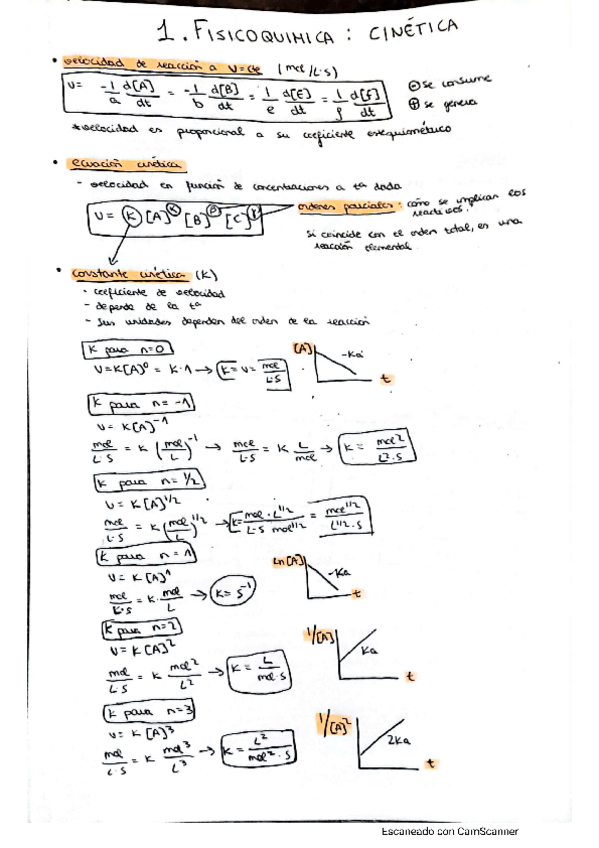 1. FISICOQUIMICA : CINÉTICA
• velocidad de reacción a V=cte (mol/L·s)
V= -1/a d[A]/dt = -1/b d[B]/dt = 1/e d[E]/dt = 1/f d[F]/dt
⊖ se consume
⊕ se genera
*velocidad es proporcional a su coeficiente estequiométrico
• ecuación cinética
- velocidad en función de concentraciones a tª dada
V = K [A]^α [B]^β [C]^γ
ordenes parciales: cómo se implican los reactivos.
Si coincide con el orden total, es una
reacción elemental
• constante cinética (K)
- coeficiente de velocidad
- depende de la tª
- Sus unidades dependen del orden de la reacción
K para n=0
V=K[A]⁰ = K·1 → K = V = mol/L·S
[A] -Ka t
K para n= -1
V= K[A]⁻¹
mol/L·S = K (mol/L)⁻¹ → mol/L·S = K L/mol → K = mol²/L²·S
K para n= 1/2
V = K [A]^1/2
mol/L·S = K (mol/L)^1/2 → K= mol · L^1/2 / L·S mol^1/2 = mol^1/2 / L^1/2 · S
K para n = 1
V= K [A]¹
mol/L·S = K · mol/L → K= S⁻¹
Ln[A] -Ka t
K para n=2
V= K [A]²
mol/L·S = K mol²/L² → K = L/mol·S
1/[A] Ka t
K para n=3
V= K [A]³
mol/L·S = K mol³/L³ → K = L²/mol²·S
1/[A]² 2Ka t
Escaneado con CamScanner